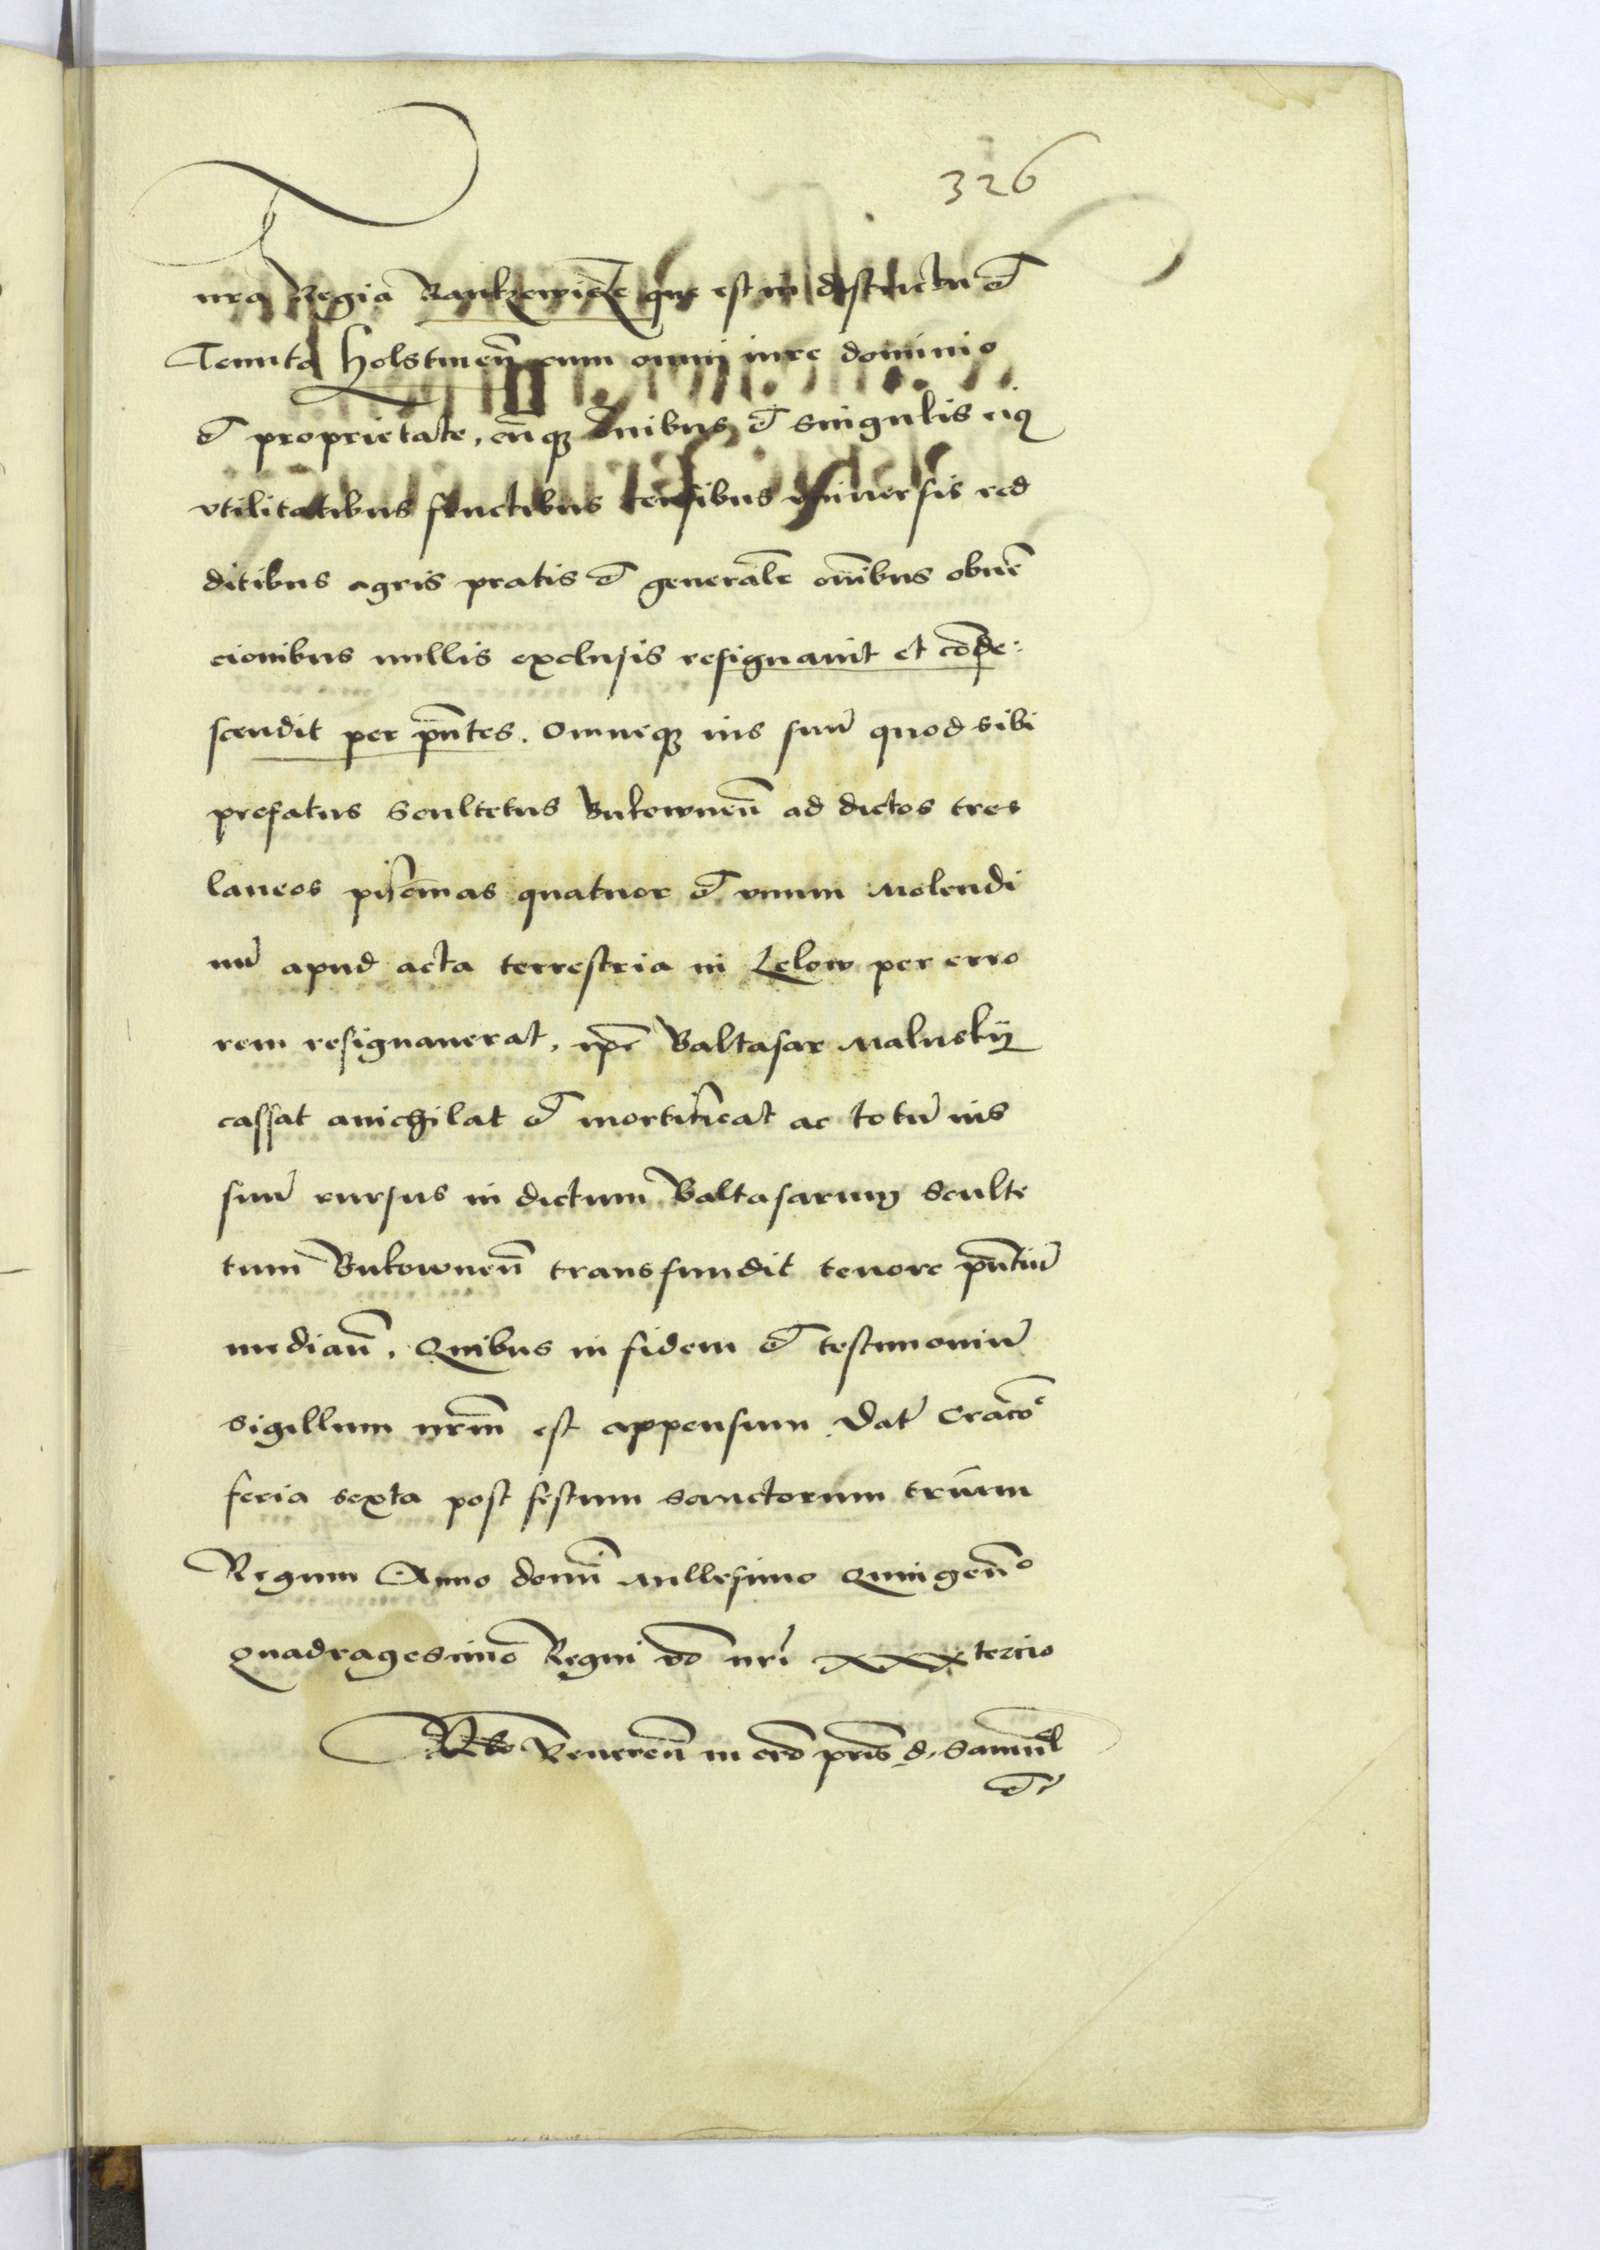 326
nra Regia Rankowicze que est in districtu et
Tenuta Holstinen cum omni iure dominio
et proprietate, cuqз omnibus et singulis eiꝯ
vtilitatibus fructibus censibus vniuersis red
ditibus agris pratis et generale omibus obuē
cionibus nullis exclusis resignauit et conde:
scendit per pntes. Omneqз ius suū quod sibi
prefatus Scultetus Bukownen ad dictos tres
laneos piscinas quatuor et vnum Molendi
nū apud acta terrestria in Lelow per erro
rem resignauerat, ipe Baltasar Maluskÿ
cassat anichilat et mortificat ac totū ius
suū rursus in dictum Baltasarum Sculte
tum Bukownen transfundit tenore pntiū
median. Quibus in fidem et testimoniū
sigillum nrm est appensum. Dat Craco͡e
feria sexta post festum sanctorum triū
Regum Anno domi Millesimo Quingen͡o
Quadragesimo Regni vo nri xxx tercio
Rlo Reueren in xro pris d. Samuel
et